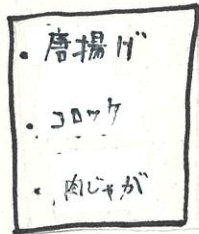 ・唐揚げ
・コロッケ
・肉じゃが